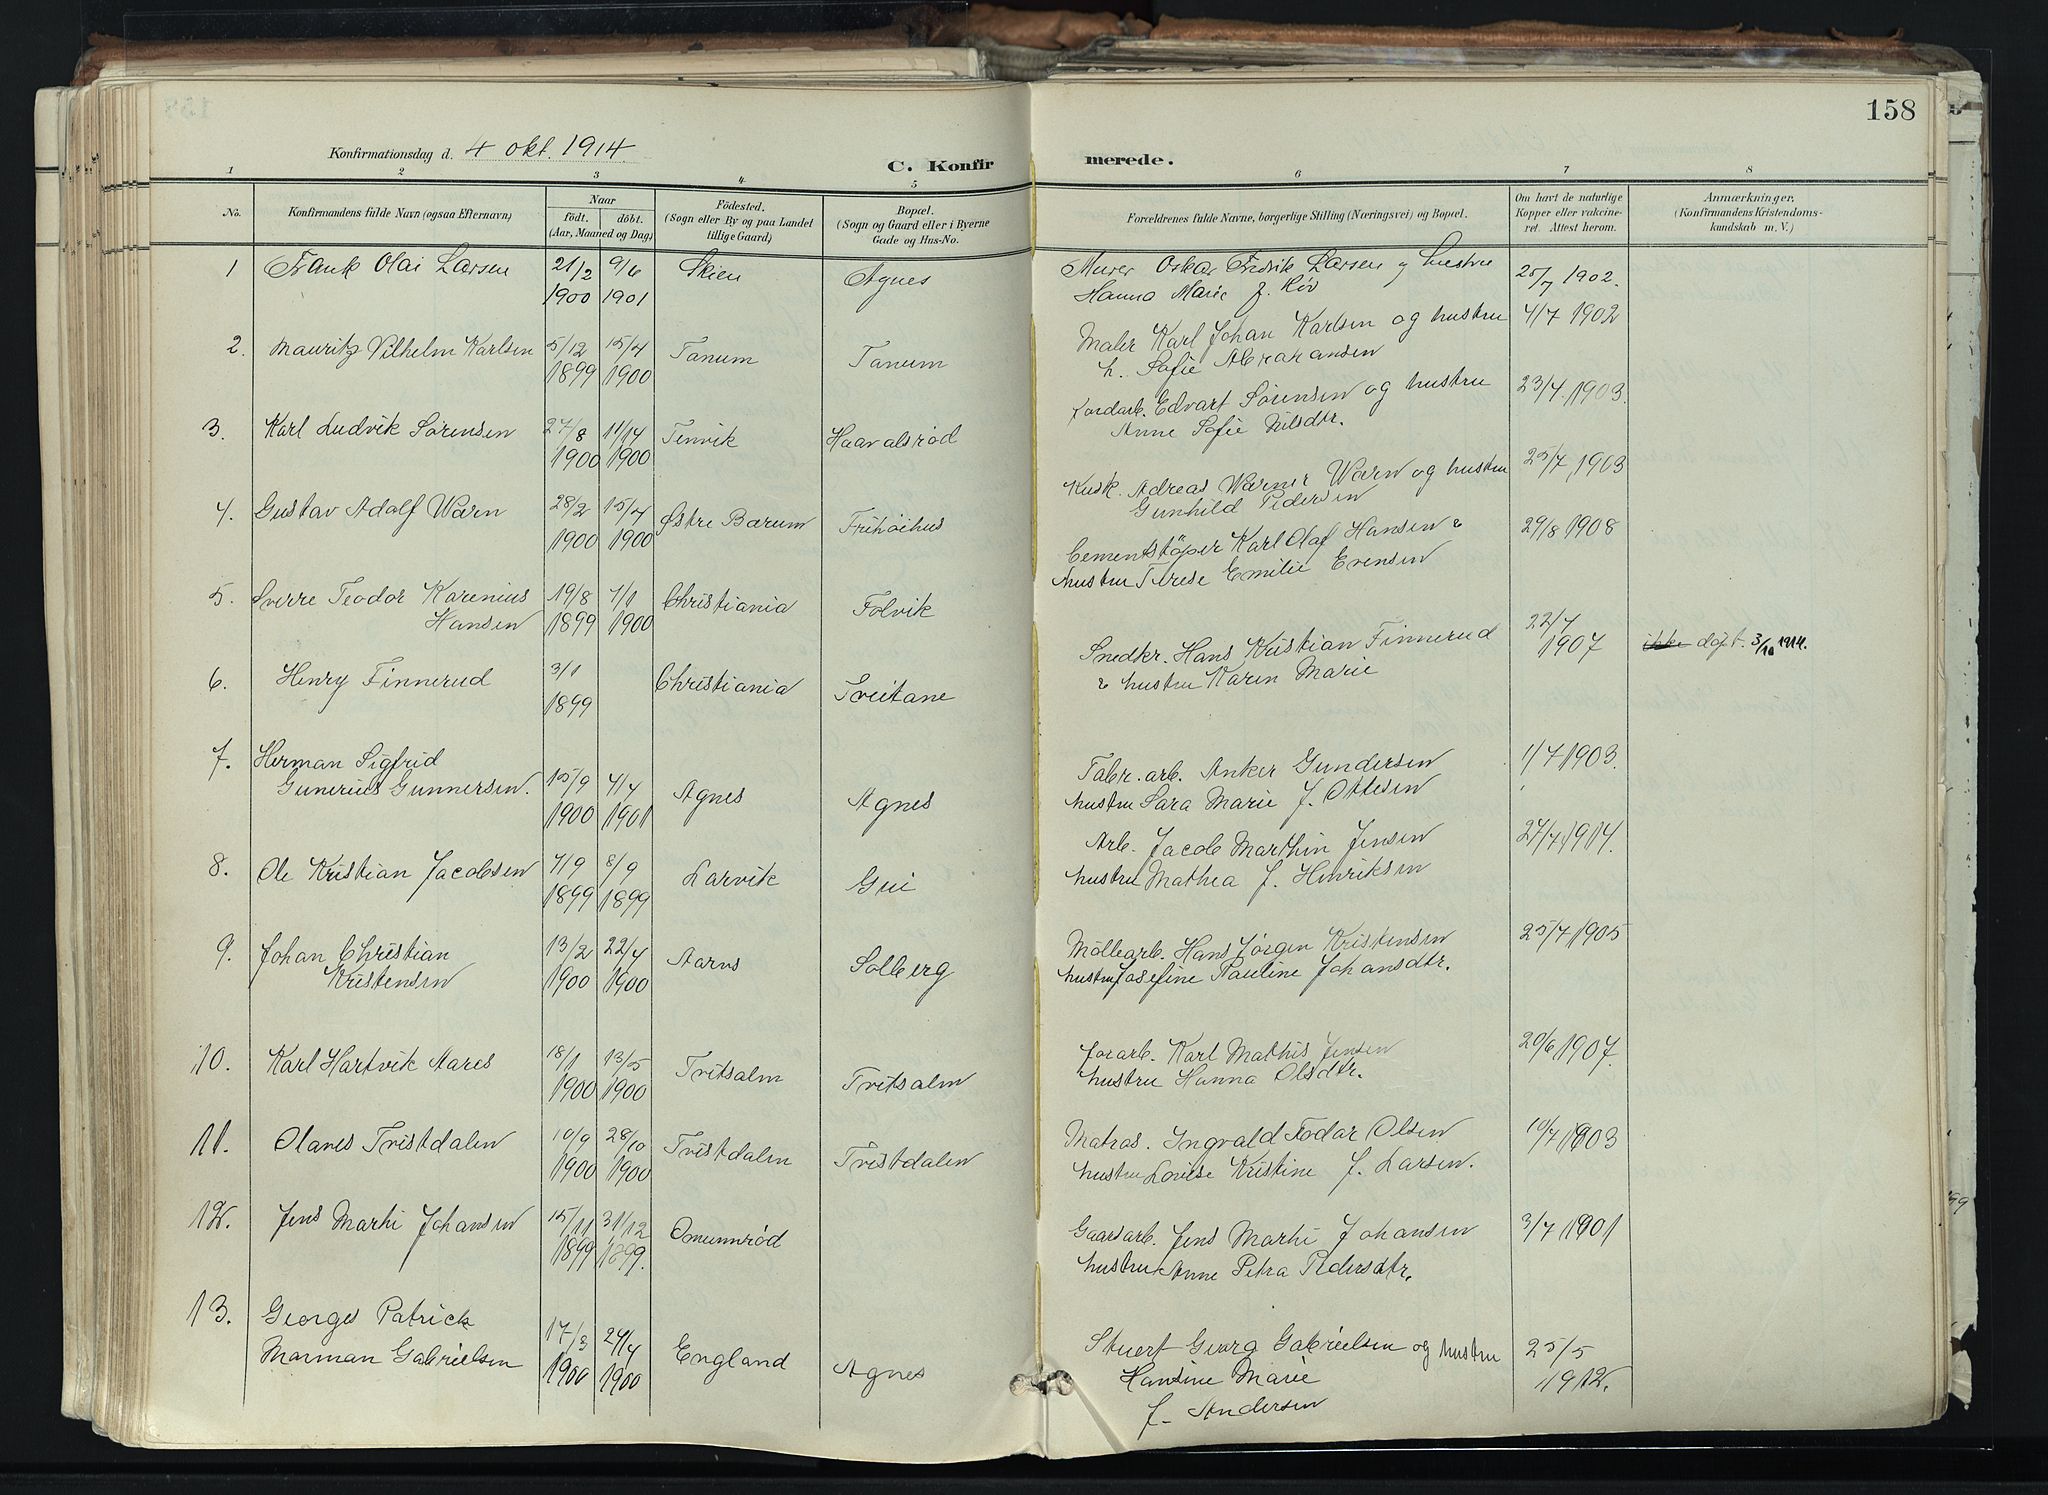 158
Konfirmationsdag d. 4 okt. 1914.
C. Konfirmerede.
1 2 3 4 5 6 7 8
No.
Konfirmandens fulde Navn (ogsaa Efternavn)
Naar
födt. döbt.
(Aar, Maaned og Dag)
Födested.
(Sogn eller By og paa Landet
tillige Gaard)
Bopæl.
(Sogn og Gaard eller i Byerne
Gade og Hus-No.
Forældrenes fulde Navne, borgerlige Stilling (Næringsvei) og Bopæl.
Om havt de naturlige
Kopper eller vakcine-
ret. Attest herom.
Anmærkninger.
(Konfirmandens Kristendoms-
kundskab m. V.)
1 Frank Olai Larsen 21/2 9/6 Skien Agnes Murer Oskar Fredrik Larsen og hustru 25/7 1902.
1900 1901 Hanna Marie f. Röv
2. Mauritz Vilhelm Karlsen 5/12 15/4 Tanum Tanum Maler Karl Johan Karlsen og hustru 4/7 1902
1899 1900 h. Sofie Abrahamsen
3. Karl Ludvik Sørensen 27/8 11/14 Tenvik Haavalsrød Jordarb. Edvart Sørensen og hustru 23/7 1903.
1900 1900 Anne Sofie Nilsdtr.
4. Gustav Adolf Warn 28/2 15/4 Østre Bærum Frihøihus Kusk. Adreas Warner Warn og hustru 25/7 1903
1900 1900 Gunhild Pedersen
5. Sverre Teodor Karenius 19/8 1/1 Christiania Folvik Cementstøper Karl Olaf Hansen & 29/8 1908
Hansen 1899 1900 hustru Terese Emilie Evensen
6. Henry Finnerud 3/1 Christiania Tveitane Snedkr. Hans Kristian Finnerud 22/7 ikke døpt. 3/10 1914.
1899 & hustru Karen Marie 1907
7. Herman Sigfrid
Gunerius Gunnersen. 15/9 4/4 Agnes Agnes Fabr. arb. Anker Gundersen 1/7 1903.
1900 1901 hustru Sara Marie f. Ottesen
8. Ole Kristian Jacobsen 7/9 8/9 Larvik Gui Arb. Jacob Marthin Jensen 27/7 1914.
1899 1899 hustru Mathea f. Henriksen
9. Johan Christian 13/2 22/4 Aarus Solberg Möllearb. Hans Jørgen Kristensen 25/7 1905
Kristensen 1900 1900 hustru Josefine Pauline Johansdtr.
10. Karl Hartvik Aares 18/1 13/5 Tvitsalm Tvitsalm Jorarb. Karl Mathis Jensen 20/6 1907.
1900 1900 hustru Hanna Olsdtr.
11. Olaves Tristdalen 10/9 28/10 Tvistdalen Tvistdalen Matros. Ingvald Fodar Olsen 10/7 1903
1900 1900 hustru Lovise Kristine f. Larsen.
12. Jens Marhi Johansen 15/11 31/12 Omunrød Gaarsarb. Jens Marhi Johansen 3/7 1901
1899 1899. hustru Anne Petra Pedersdtr.
13. Georges Patrick
Marman Gabrielsen 17/3 24/4 England Agnes Stuert Georg Gabrielsen og hustru 25/5
1900 1900 Hansine Marie 1912.
f. Andersen